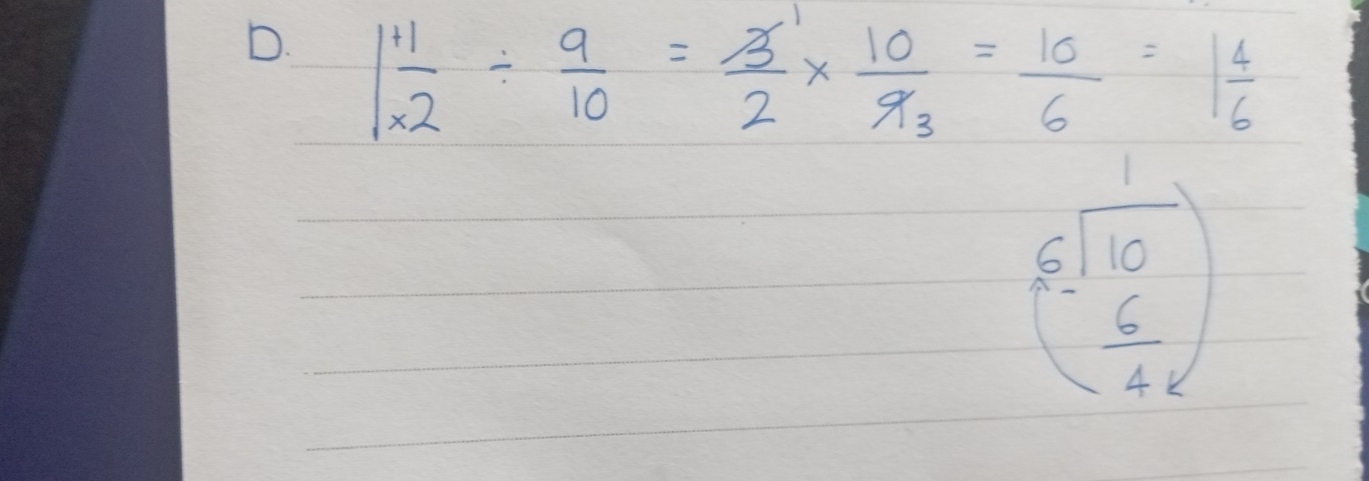 D. 1 +1/×2 ÷ 9/10 = 3¹/2 × 10/9₃ = 10/6 = 1 4/6
1
6 10
- 6
4